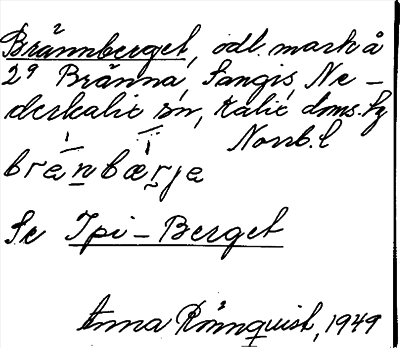 Brännberget, odl. mark å
2⁹ Bränna, Sangis, Ne-
derkalix sn, Kalix doms. hg
Norrb. l
brä́n̲bær̲ja
Se Ipi-Berget
Anna Rönnquist, 1949